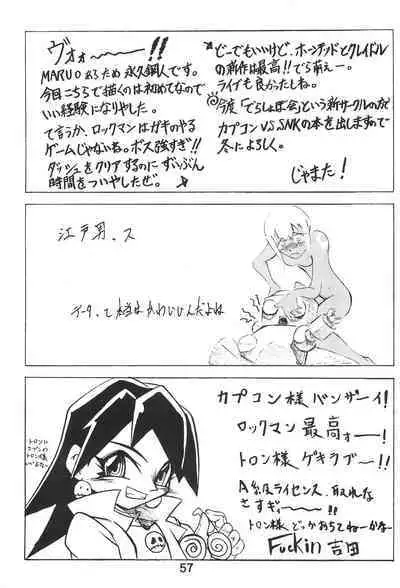 ヴォォ〜〜〜!!
MARUOあらため永久鋼人です。
今回こちらで描くのは初めてなので
いい経験になりやした。
て言うか、ロックマンはガキのやる
ゲームじゃないね。ボス強すぎ!!
ダッシュをクリアするのにずいぶん
時間をついやしたぜ。
どーでもいいけど、ホンデッドとクレイドル
の新作は最高!!でら萌えー。
ライブも良かったしね。
今度「でらしょぼ会」という新サークルの方で
カプコンVS.SNKの本を出しますので
冬によろしく。
じゃまた!
江戸男.ス
データ.って本当はかわいいんだよね
カプコン様バンザーイ!
ロックマン最高ォー!
トロン様ゲキラブー!!
A級ライセンス、取れな
さすぎ〜
トロン様どっかおちてねーかな
Fuckin 吉田
57